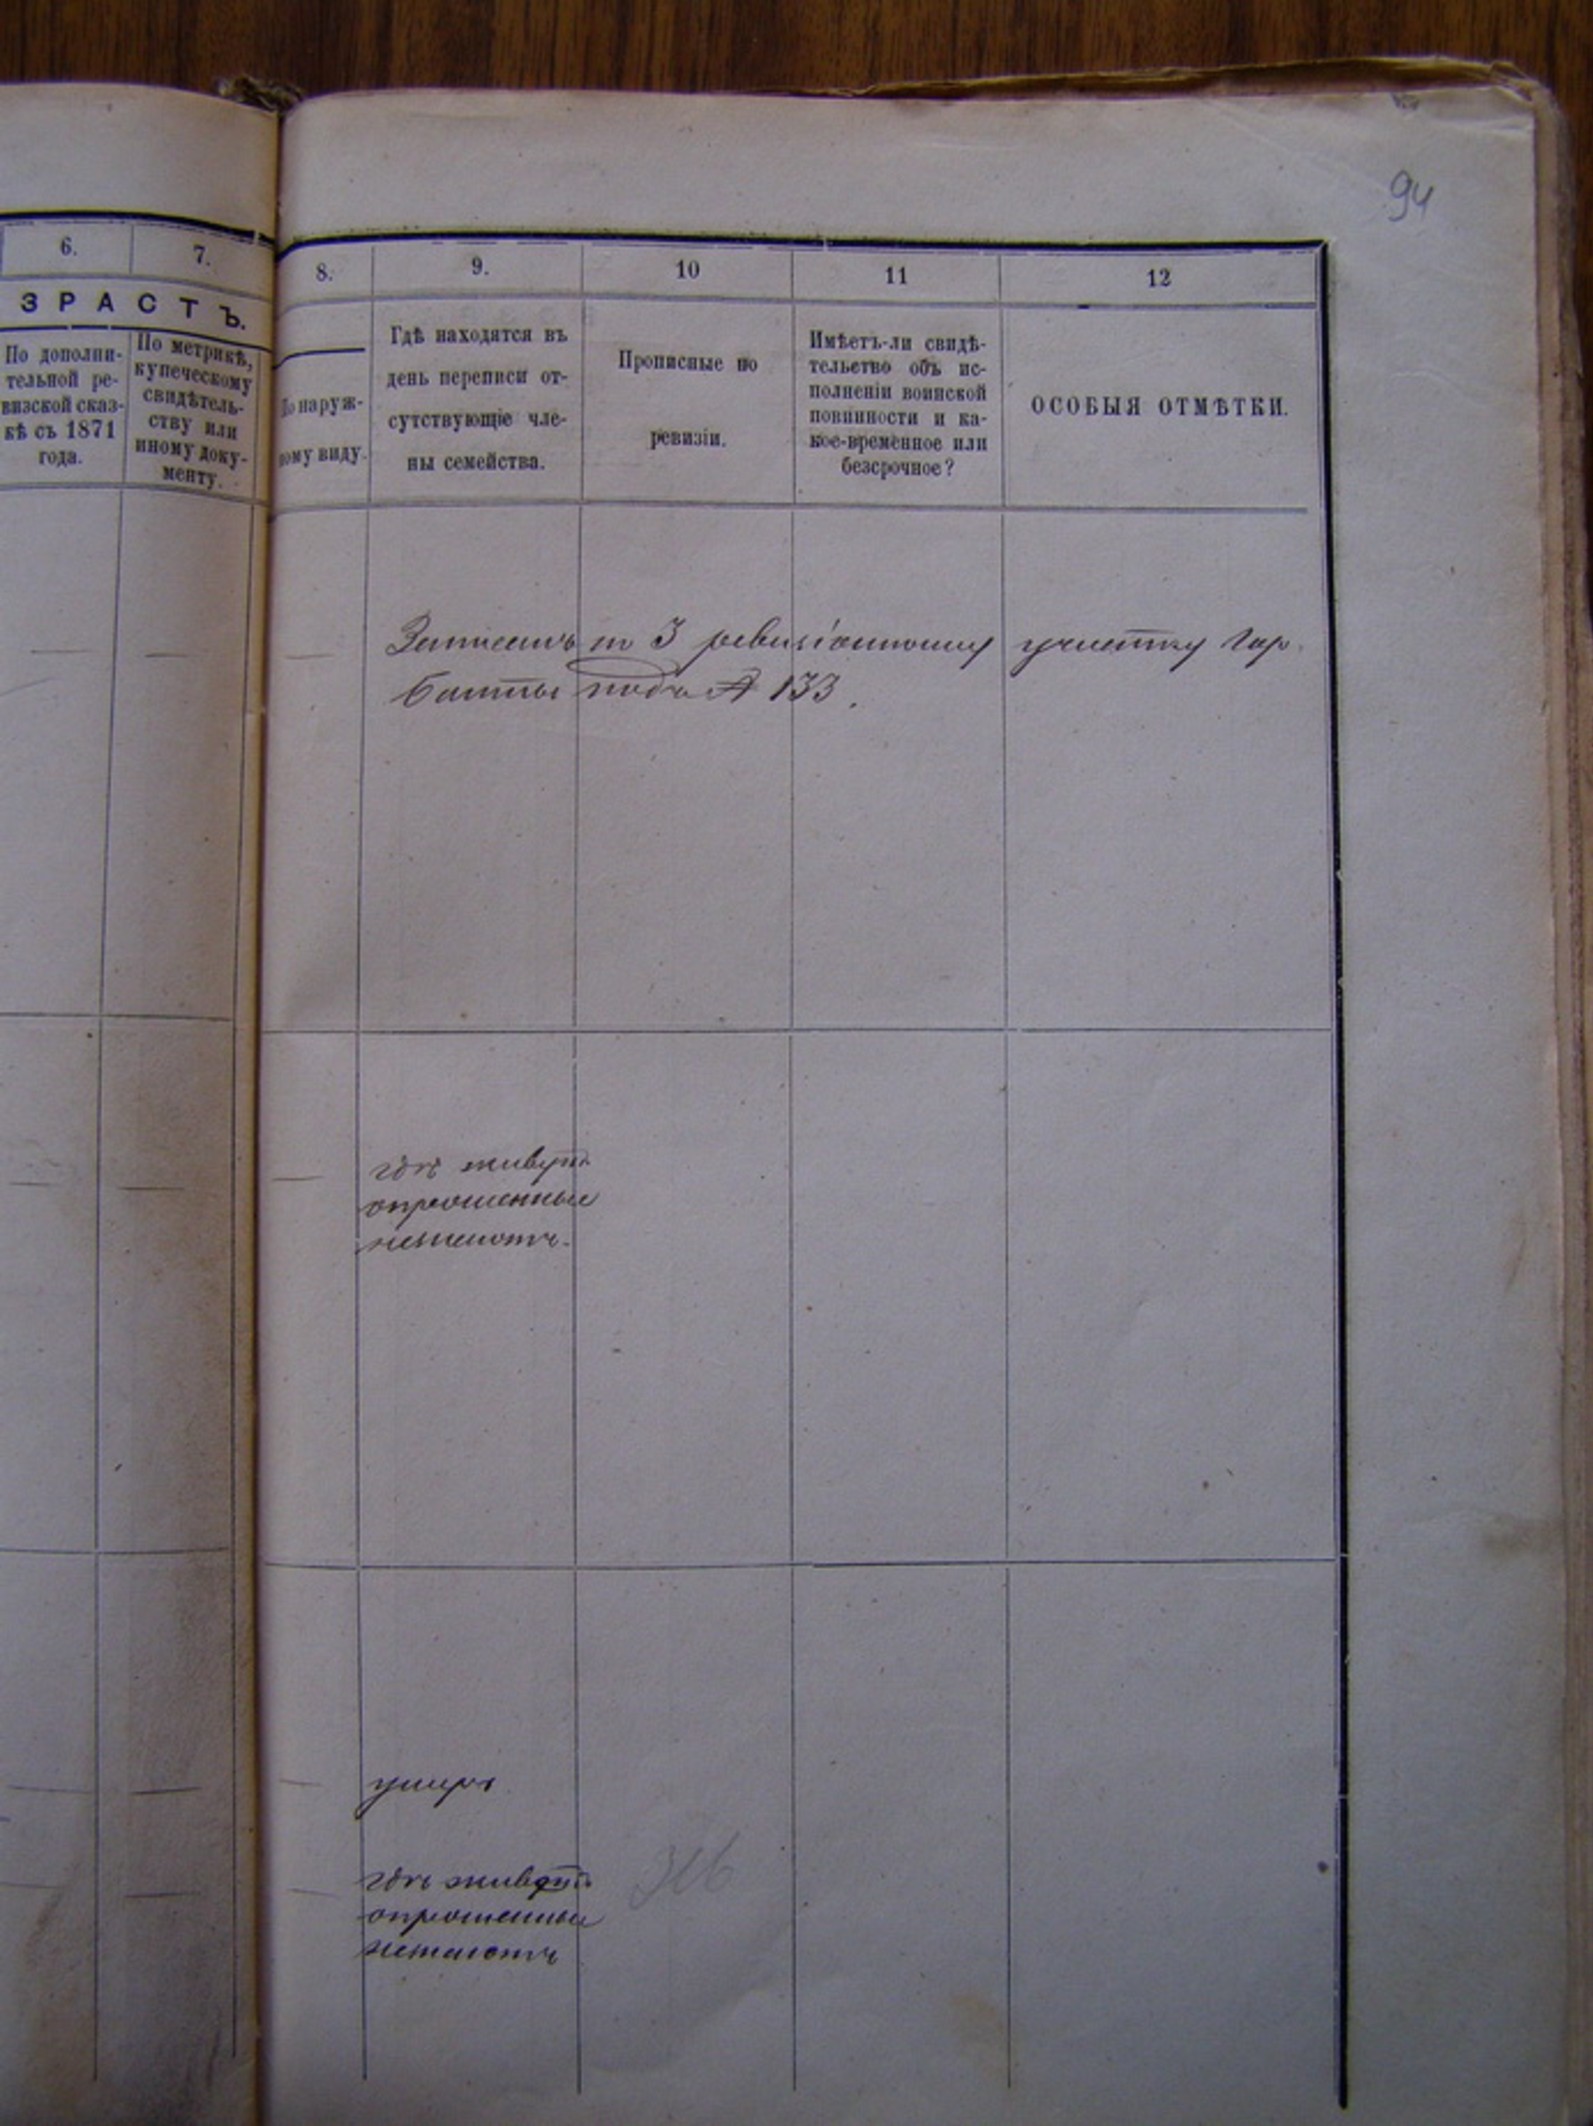 94
6.
7.
8.
9.
10
11
12
ЗРАСТЪ.
По дополни-
тельной ре-
визской сказ-
кѣ съ 1871
года.
По метрикѣ,
купеческому
свидѣтель-
ству или
иному доку-
менту.
По наруж-
ному виду.
Гдѣ находятся въ
день переписи от-
сутствующіе чле-
ны семейства.
Прописные по
ревизіи.
Имѣетъ-ли свидѣ-
тельство объ ис-
полненіи воинской
повинности и ка-
кое-временное или
безсрочное?
ОСОБЫЯ ОТМѢТКИ.
Записанъ по 3 ревизіонному участку Гор.
подъ № 133.
гдѣ живутъ
опрошенные
незнаютъ.
умеръ
гдѣ живутъ
опрошенные
незнаютъ